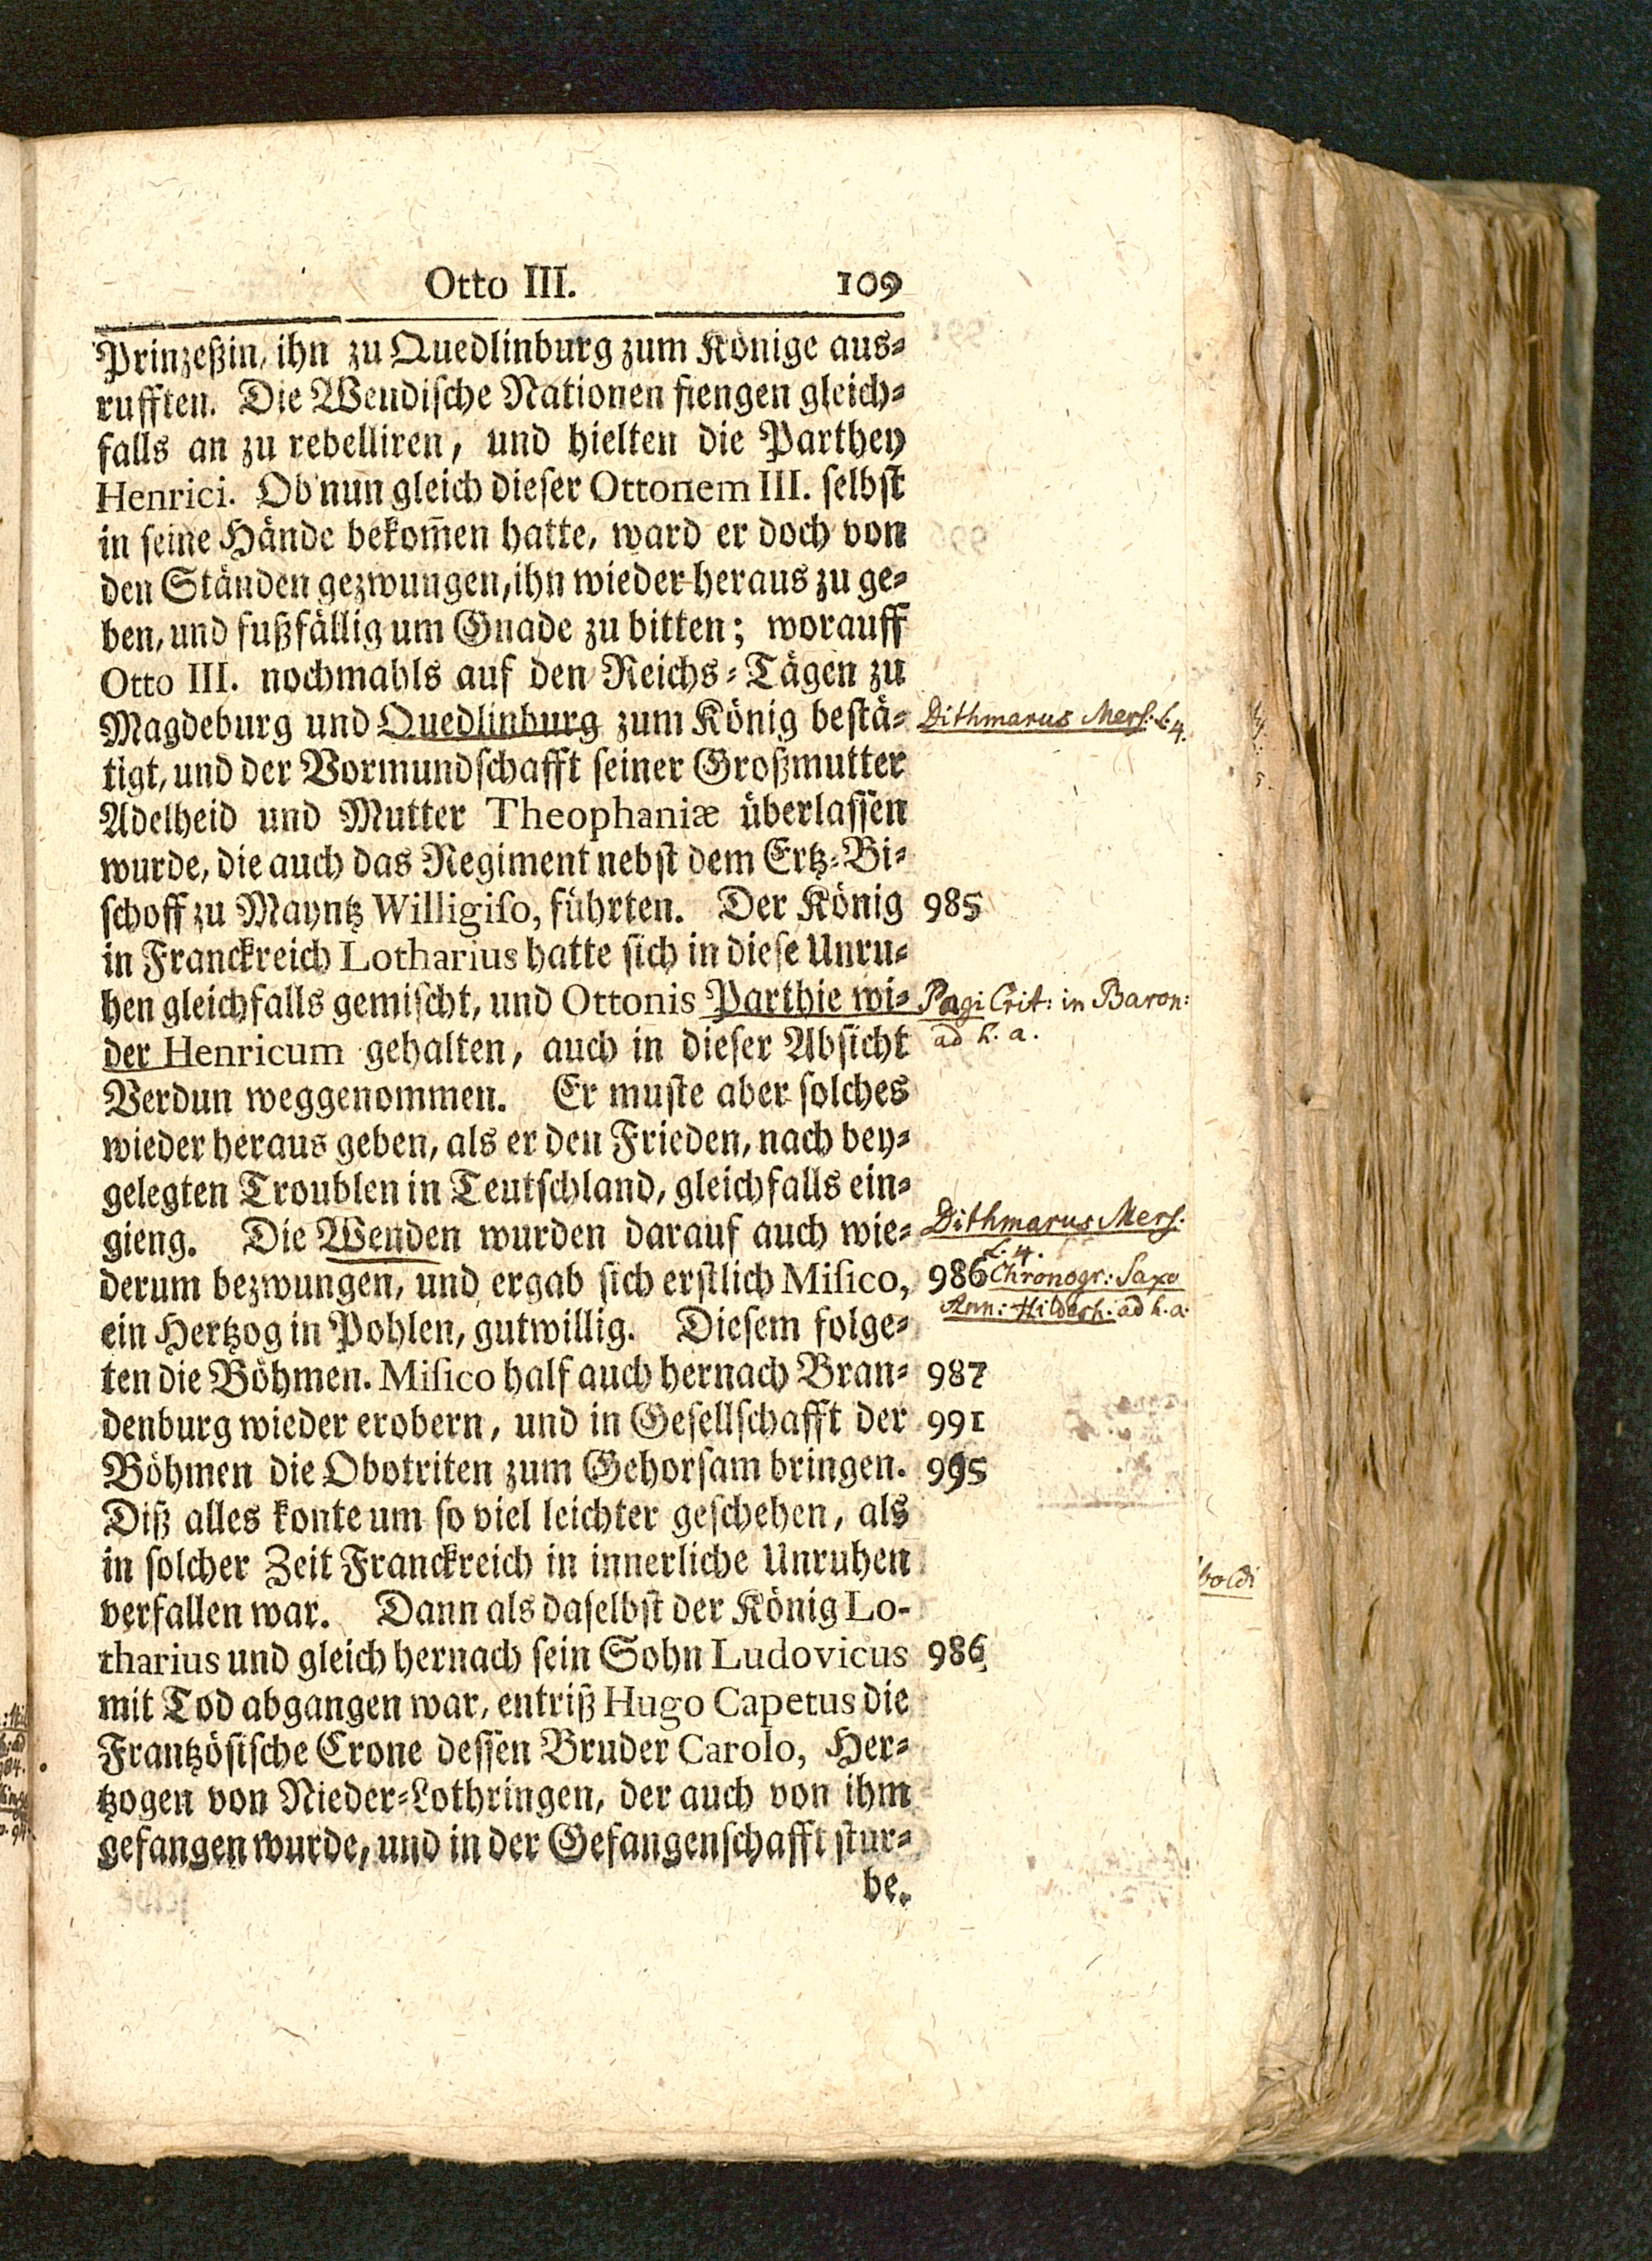 Otto III. 109
Prinzeßin, ihn zu Quedlinburg zum Könige aus-
rufften. Die Wendische Nationen fiengen gleich-
falls an zu rebelliren, und hielten die Parthey
Henrici. Ob nun gleich dieser Ottonem III. selbst
in seine Hände bekom̃en hatte, ward er doch von
den Ständen gezwungen, ihn wieder heraus zu ge-
ben, und fußfällig um Gnade zu bitten; worauff
Otto III. nochmahls auf den Reichs-Tägen zu
Magdeburg und Quedlinburg zum König bestä- Dithmarus Mers. L. 4.
tigt, und der Vormundschafft seiner Großmutter
Adelheid und Mutter Theophaniæ überlassen
wurde, die auch das Regiment nebst dem Ertz-Bi-
schoff zu Mayntz Willigiso, führten. Der König 985
in Franckreich Lotharius hatte sich in diese Unru-
hen gleichfalls gemischt, und Ottonis Parthie wi- Pagi Crit: in Baron:
der Henricum gehalten, auch in dieser Absicht ad h. a.
Verdun weggenommen. Er muste aber solches
wieder heraus geben, als er den Frieden, nach bey-
gelegten Troublen in Teutschland, gleichfalls ein-
gieng. Die Wenden wurden darauf auch wie- Dithmarus Mers.
L. 4.
derum bezwungen, und ergab sich erstlich Misico, 986 Chronogr: Saxo
Ann: Hildesh: ad h. a:
ein Hertzog in Pohlen, gutwillig. Diesem folge-
ten die Böhmen. Misico half auch hernach Bran- 987
denburg wieder erobern, und in Gesellschafft der 991
Böhmen die Obotriten zum Gehorsam bringen. 995
Diß alles konte um so viel leichter geschehen, als
in solcher Zeit Franckreich in innerliche Unruhen
verfallen war. Dann als daselbst der König Lo-
tharius und gleich hernach sein Sohn Ludovicus 986
mit Tod abgangen war, entriß Hugo Capetus die
Frantzösische Crone dessen Bruder Carolo, Her-
tzogen von Nieder-Lothringen, der auch von ihm
gefangen wurde, und in der Gefangenschafft stur-
be.